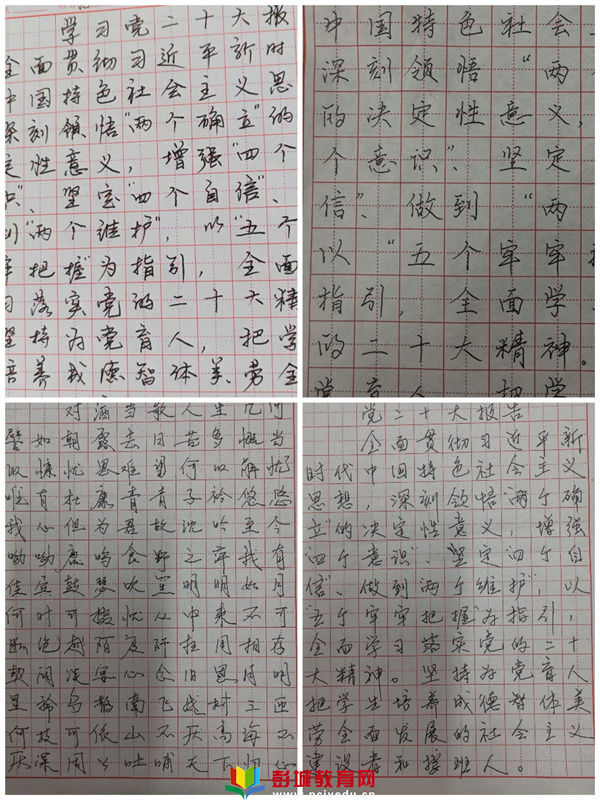 学习党二十大报
全面贯彻习近平新时
中国特色社会主义思
深刻领悟"两个确立"的
定性意义，增强"四个
识"、坚定"四个自信"、
到"两个维护"，以"五个
牢把握"为指引，全面
习落实党的二十大精
坚持为党育人，把学
培养成德智体美劳全
中国特色社会
深刻领悟"两
的决定性意义，
个意识"、坚定
信"、做到"两
以"五个牢牢
指引，全面学
的二十大精神。
党育人
对酒当歌人生几何
譬如朝露去日苦多慨当
以慷忧思难忘何以解忧
唯有杜康青青子衿悠悠
我心但为君故沈吟至今
呦呦鹿鸣食野之苹我有
佳宾鼓瑟吹笙明明如月
何时可掇忧从中来不可
断绝越陌度阡枉用相存
契阔谈宴心念旧恩月明
星稀乌鹊南飞绕树三匝
何枝可依山不厌高海不
厌深周公吐哺天下归心
党二十大报告
全面贯彻习近平新
时代中国特色社会主义
思想，深刻领悟"两个确
立"的决定性意义，增强
"四个意识"、坚定"四个自
信"、做到"两个维护"，以
"五个牢牢把握"为指引，
全面学习落实党的二十
大精神。坚持为党育人
把学生培养成德智体美
劳全面发展的社会主义
建设者和接班人。
彭城教育网
www.pcjyedu.cn